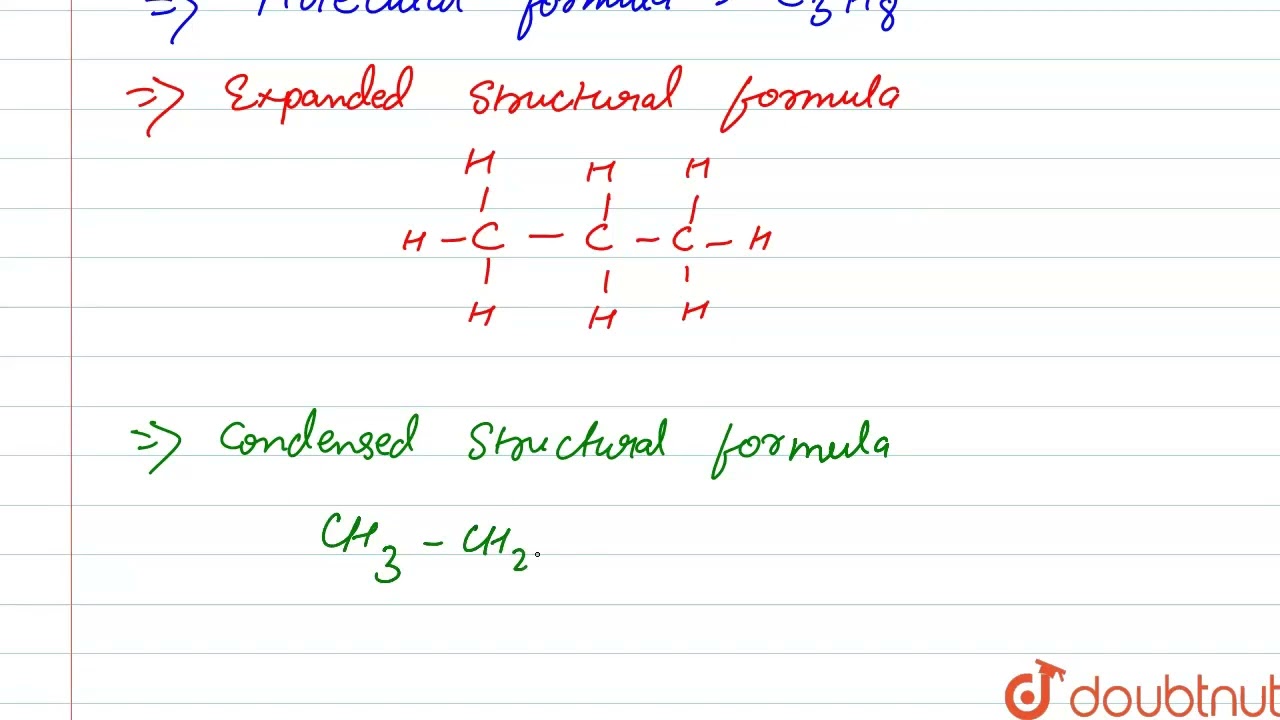 => Molecular formula > C3H8
=> Expanded Structural formula
H H H
H - C - C - C - H
H H H
=> Condensed Structural formula
CH3 - CH2
doubtnut